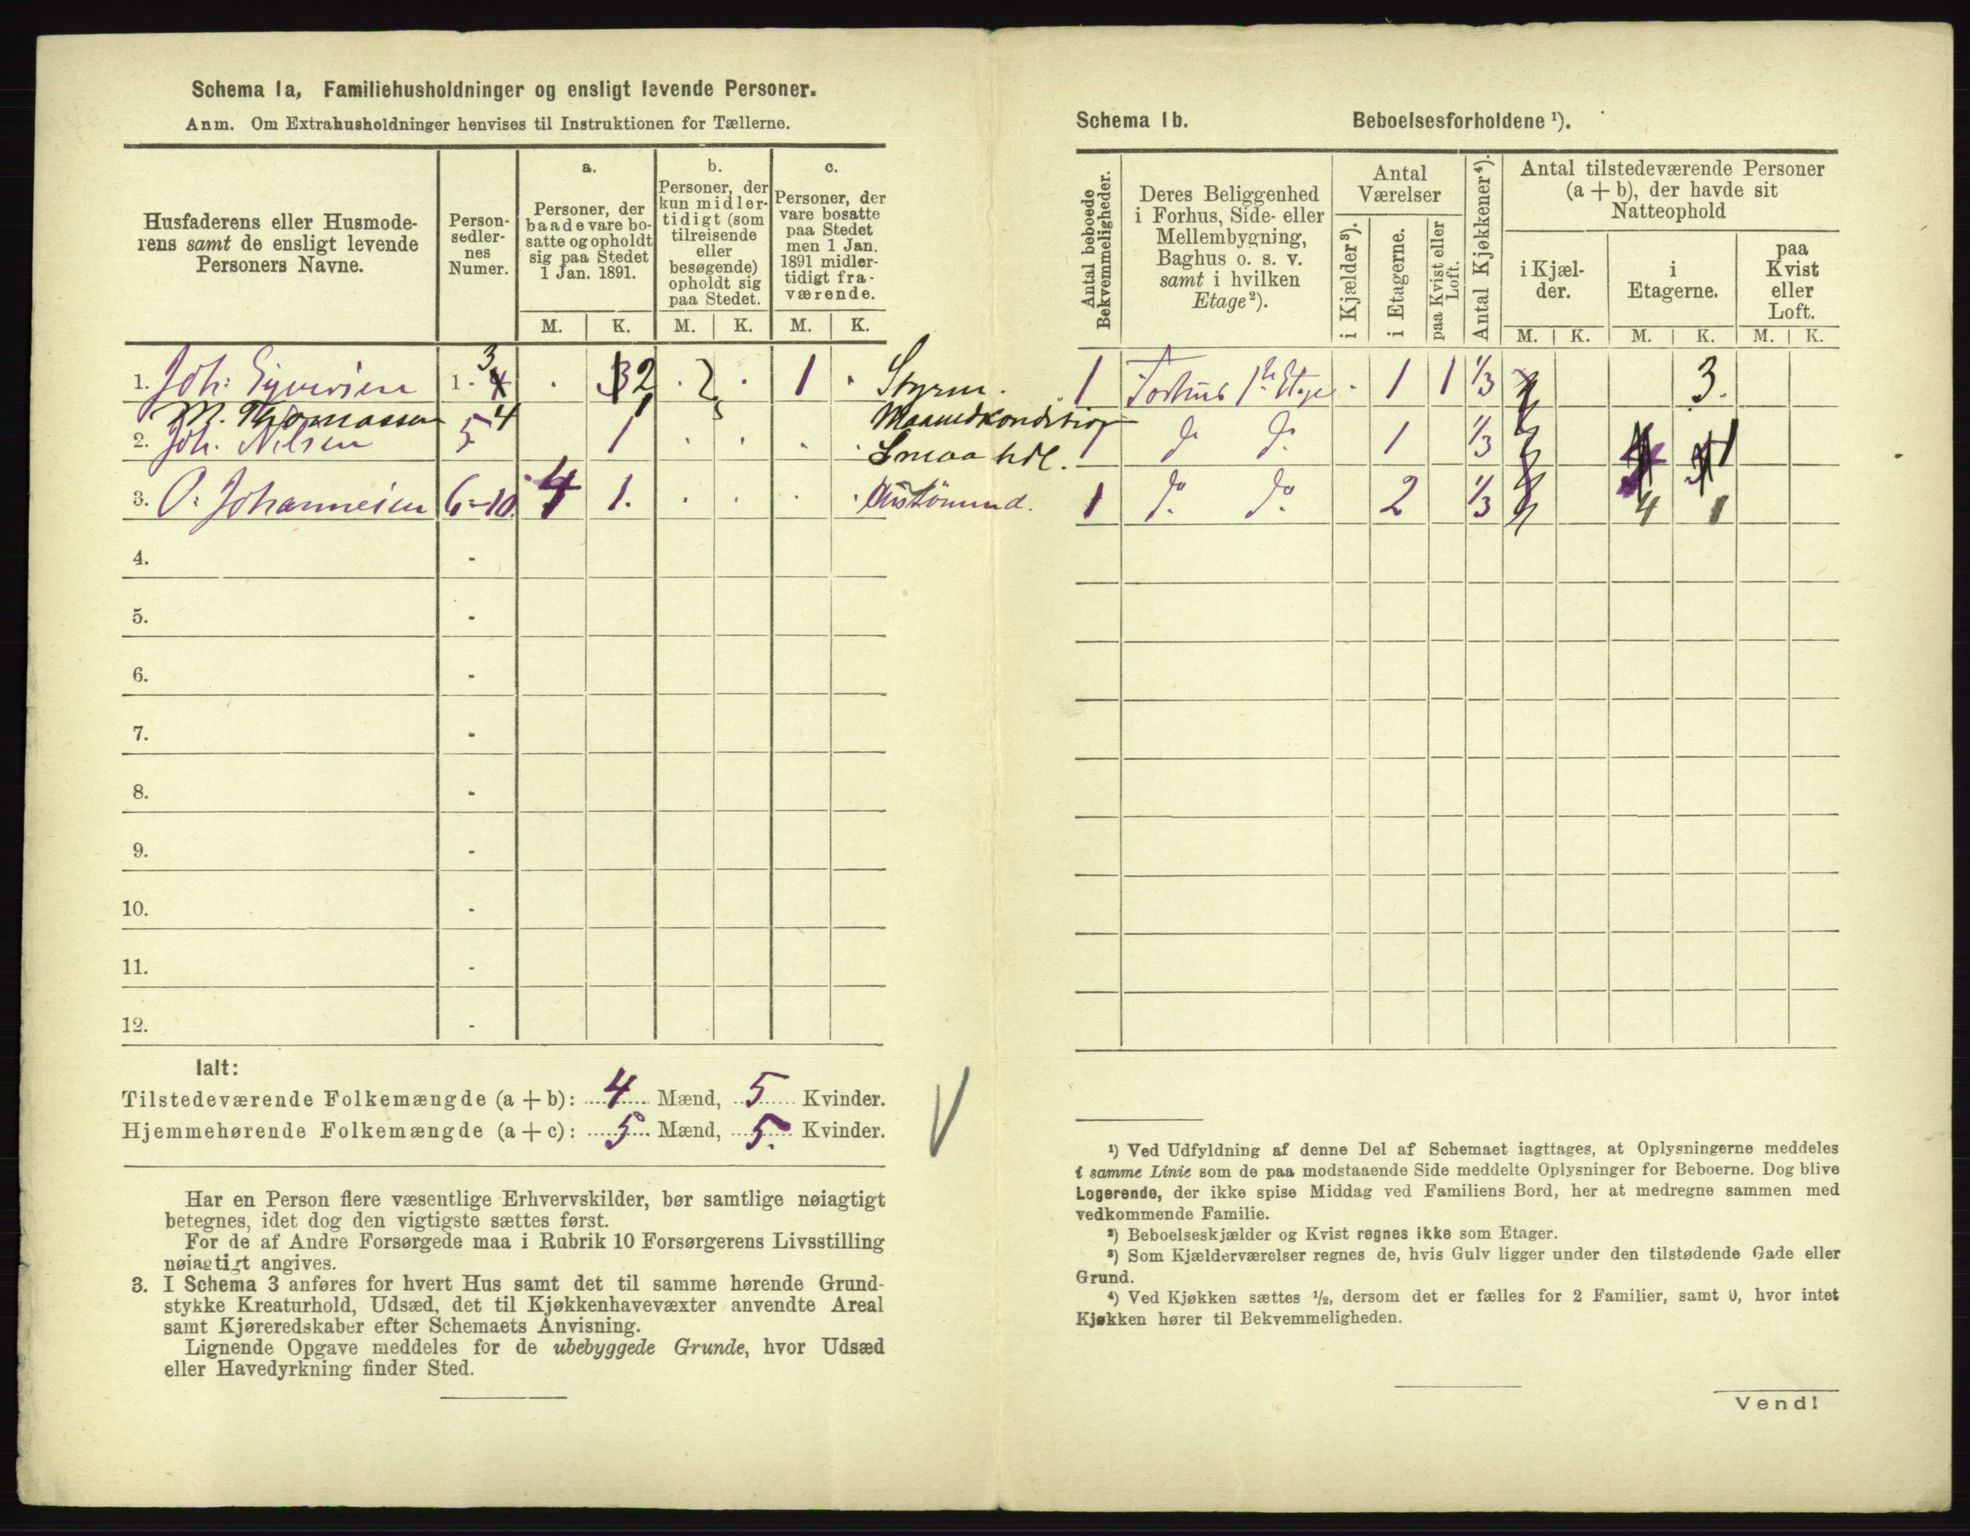 Schema 1a, Familiehusholdninger og ensligt levende Personer.
Anm. Om Extrahusholdninger henvises til Instruktionen for Tællerne.
Husfaderens eller Husmode-
rens samt de ensligt levende
Personers Navne.
Person-
sedler-
nes
Numer.
a.
Personer, der
baade vare bo-
satte og opholdt
sig paa Stedet
1 Jan. 1891.
b.
Personer, der
kun midler-
tidigt (som
tilreisende
eller
besøgende)
opholdt sig
paa Stedet.
c.
Personer, der
vare bosatte
paa Stedet
men 1 Jan.
1891 midler-
tidigt fra-
værende.
M. K. M. K. M. K.
1. Joh: 1 - 3 . 2 . . 1 . Styrm.
M. Thomassen 4 1 Maanedkondition
2. Joh. Nilsen 5 1 . . . . Smaahdl.
3. O. Johannesen 6-10 4 1. . . . .
4. -
5. -
6. -
7. -
8. -
9. -
10. -
11. -
12. -
Ialt:
Tilstedeværende Folkemængde (a + b): 4 Mænd, 5 Kvinder.
Hjemmehørende Folkemængde (a + c): 5 Mænd, 5. Kvinder.
Har en Person flere væsentlige Erhvervskilder, bør samtlige nøiagtigt
betegnes, idet dog den vigtigste sættes først.
For de af Andre Forsørgede maa i Rubrik 10 Forsørgerens Livsstilling
nøiagtigt angives.
3. I Schema 3 anføres for hvert Hus samt det til samme hørende Grund-
stykke Kreaturhold, Udsæd, det til Kjøkkenhavevæxter anvendte Areal
samt Kjøreredskaber efter Schemaets Anvisning.
Lignende Opgave meddeles for de ubebyggede Grunde, hvor Udsæd
eller Havedyrkning finder Sted.
Schema 1b. Beboelsesforholdene ¹).
Antal beboede
Bekvemmeligheder.
Deres Beliggenhed
i Forhus, Side- eller
Mellembygning,
Baghus o. s. v.
samt i hvilken
Etage²).
Antal
Værelser
i Kjælder³).
i Etagerne.
paa Kvist eller
Loft.
Antal Kjøkkener⁴).
Antal tilstedeværende Personer
(a + b), der havde sit
Natteophold
i Kjæl-
der.
i
Etagerne.
paa
Kvist
eller
Loft.
M. K. M. K. M. K.
1 Forhus 1ste Etage . 1 1 1/3 3.
1 do do 1 1/3 1
1 do do 2 1/3 4 1
¹) Ved Udfyldning af denne Del af Schemaet iagttages, at Oplysningerne meddeles
i samme Linie som de paa modstaaende Side meddelte Oplysninger for Beboerne. Dog blive
Logerende, der ikke spise Middag ved Familiens Bord, her at medregne sammen med
vedkommende Familie.
²) Beboelseskjælder og Kvist regnes ikke som Etager.
³) Som Kjælderværelser regnes de, hvis Gulv ligger under den tilstødende Gade eller
Grund.
⁴) Ved Kjøkken sættes ½, dersom det er fælles for 2 Familier, samt 0, hvor intet
Kjøkken hører til Bekvemmeligheden.
Vend!